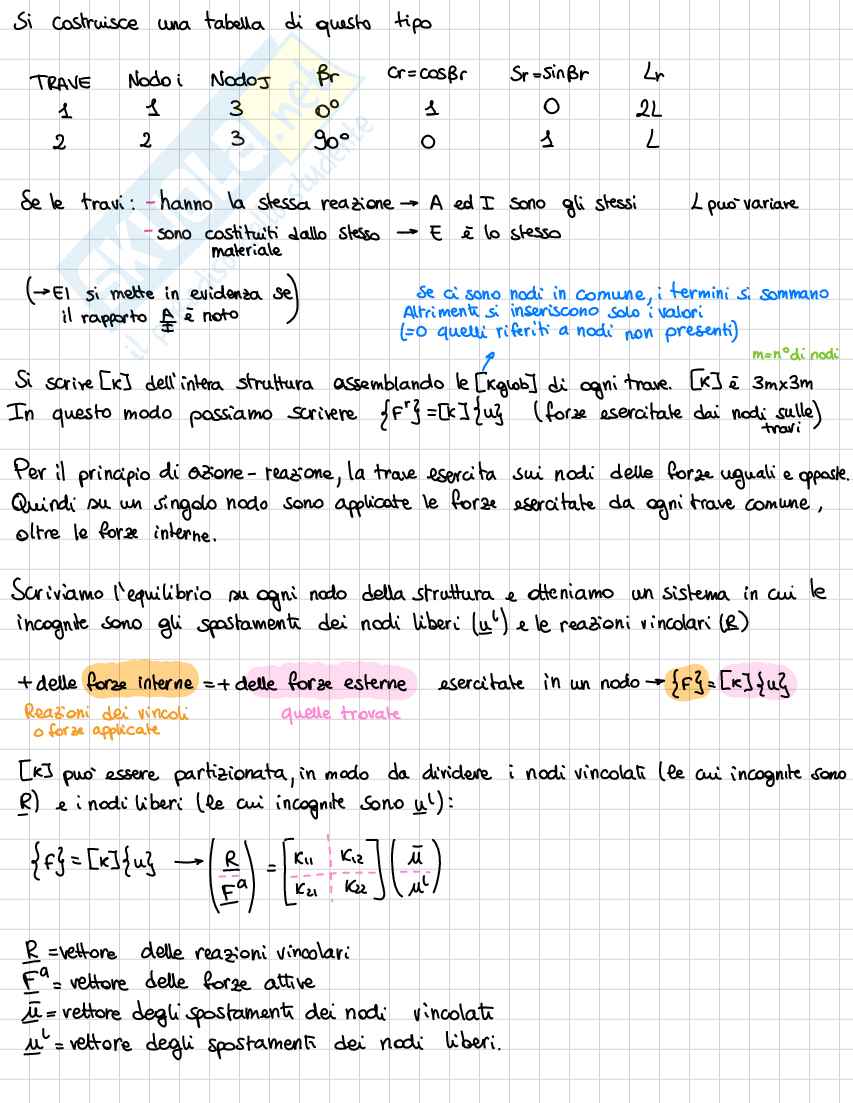 Si costruisce una tabella di questo tipo
TRAVE Nodo i Nodo J βr Cr=cosβr Sr=sinβr Lr
1 1 3 0° 1 0 2L
2 2 3 90° 0 1 L
Se le travi: - hanno la stessa reazione → A ed I sono gli stessi L può variare
- sono costituiti dallo stesso → E è lo stesso
materiale
(→ EI si mette in evidenza se
il rapporto A/I è noto)
Se ci sono nodi in comune, i termini si sommano
Altrimenti si inseriscono solo i valori
(=0 quelli riferiti a nodi non presenti)
m=n° di nodi
Si scrive [K] dell'intera struttura assemblando le [Kglob] di ogni trave. [K] è 3mx3m
In questo modo possiamo scrivere {Fʳ}=[K]{u} (forze esercitate dai nodi sulle
travi)
Per il principio di azione-reazione, la trave esercita sui nodi delle forze uguali e opposte.
Quindi su un singolo nodo sono applicate le forze esercitate da ogni trave comune,
oltre le forze interne.
Scriviamo l'equilibrio su ogni nodo della struttura e otteniamo un sistema in cui le
incognite sono gli spostamenti dei nodi liberi (u̲ᴸ) e le reazioni vincolari (R̲)
+ delle forze interne = + delle forze esterne esercitate in un nodo → {F}=[K]{u}
Reazioni dei vincoli quelle trovate
o forze applicate
[K] può essere partizionata, in modo da dividere i nodi vincolati (le cui incognite sono
R̲) e i nodi liberi (le cui incognite sono u̲ᴸ):
{F}=[K]{u} → (R̲ / F̲ᵃ) = [K11 K12 / K21 K22] (ū / uᴸ)
R̲ = vettore delle reazioni vincolari
F̲ᵃ = vettore delle forze attive
ū̲ = vettore degli spostamenti dei nodi vincolati
u̲ᴸ = vettore degli spostamenti dei nodi liberi.
SKUOLA.net